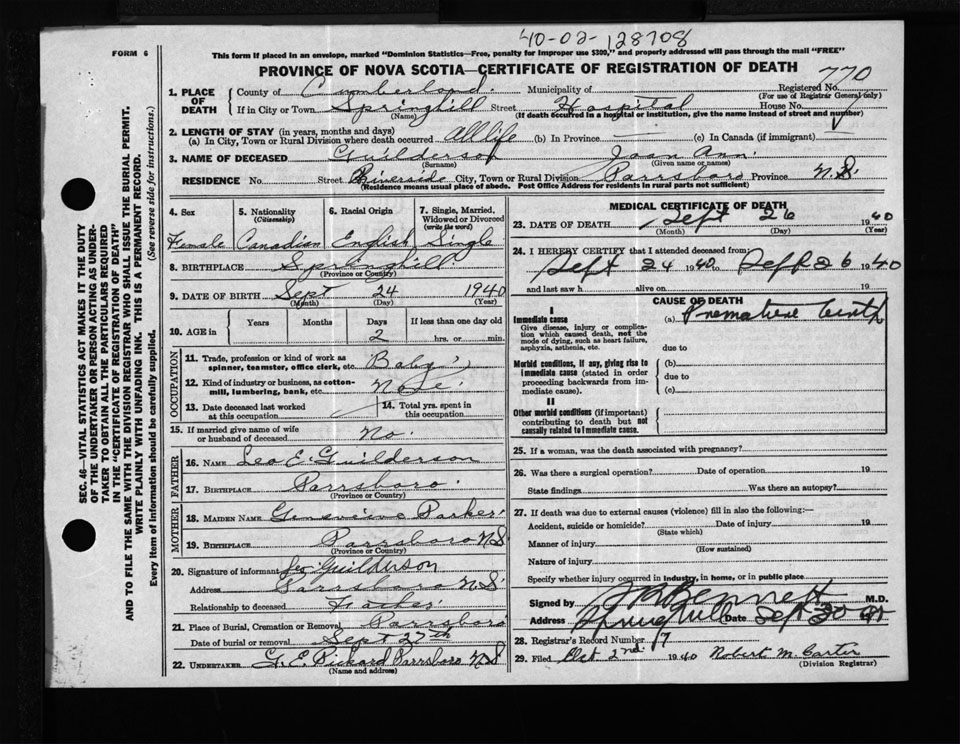 40-02-128708
FORM 6
This form if placed in an envelope, marked "Dominion Statistics—Free, penalty for improper use $300," and properly addressed will pass through the mail "FREE"
PROVINCE OF NOVA SCOTIA—CERTIFICATE OF REGISTRATION OF DEATH
770
1. PLACE OF DEATH
County of Cumberland Municipality of Registered No.
(For use of Registrar General only)
If in City or Town Springhill Street Hospital House No.
(Name) (If death occurred in a hospital or institution, give the name instead of street and number)
2. LENGTH OF STAY (in years, months and days)
(a) In City, Town or Rural Division where death occurred All life (b) In Province — (c) In Canada (if immigrant)
3. NAME OF DECEASED Guilderson Joan Ann
(Surname) (Given name or names)
RESIDENCE No. Street Riverside City, Town or Rural Division Parrsboro Province N.S.
(Residence means usual place of abode. Post Office Address for residents in rural parts not sufficient)
4. Sex 5. Nationality (Citizenship) 6. Racial Origin 7. Single, Married, Widowed or Divorced (write the word)
Female Canadian English Single
8. BIRTHPLACE Springhill
(Province or Country)
9. DATE OF BIRTH Sept 24 1940
(Month) (Day) (Year)
10. AGE in Years Months Days If less than one day old
2 hrs. or min.
OCCUPATION
11. Trade, profession or kind of work as spinner, teamster, office clerk, etc. Baby
12. Kind of industry or business, as cotton-mill, lumbering, bank, etc.
13. Date deceased last worked at this occupation 14. Total yrs. spent in this occupation
15. If married give name of wife or husband of deceased No.
FATHER
16. NAME Leo E. Guilderson
17. BIRTHPLACE Parrsboro
(Province or Country)
MOTHER
18. MAIDEN NAME Genevieve Parker
19. BIRTHPLACE Parrsboro N.S.
(Province or Country)
20. Signature of informant Leo Guilderson
Address Parrsboro N.S.
Relationship to deceased Father
21. Place of Burial, Cremation or Removal Parrsboro
Date of burial or removal Sept 27th
22. UNDERTAKER G. E. Pickard Parrsboro N.S.
MEDICAL CERTIFICATE OF DEATH
23. DATE OF DEATH Sept 26 1940
(Month) (Day) (Year)
24. I HEREBY CERTIFY that I attended deceased from:
Sept 24 1940 to Sept 26 1940
and last saw h alive on 19
CAUSE OF DEATH
I
Immediate cause
Give disease, injury or complication which caused death, not the mode of dying, such as heart failure, asphyxia, asthenia, etc.
(a) Premature birth
due to
Morbid conditions, if any, giving rise to immediate cause (stated in order proceeding backwards from immediate cause).
(b)
due to
(c)
II
Other morbid conditions (if important) contributing to death but not causally related to immediate cause.
25. If a woman, was the death associated with pregnancy?
26. Was there a surgical operation? Date of operation 19
State findings Was there an autopsy?
27. If death was due to external causes (violence) fill in also the following:—
Accident, suicide or homicide? Date of injury 19
(State which)
Manner of injury
(How sustained)
Nature of injury
Specify whether injury occurred in industry, in home, or in public place
Signed by Bennett M.D.
Address Springhill Date Sept 30
28. Registrar's Record Number 17
29. Filed Oct 2nd 1940 Robert M. Carter
(Division Registrar)
SEC. 46—VITAL STATISTICS ACT MAKES IT THE DUTY
OF THE UNDERTAKER OR PERSON ACTING AS UNDER-
TAKER TO OBTAIN ALL THE PARTICULARS REQUIRED
IN THE "CERTIFICATE OF REGISTRATION OF DEATH"
AND TO FILE THE SAME WITH THE DIVISION REGISTRAR WHO SHALL ISSUE THE BURIAL PERMIT.
WRITE PLAINLY WITH UNFADING INK. THIS IS A PERMANENT RECORD.
Every item of information should be carefully supplied. (See reverse side for instructions.)